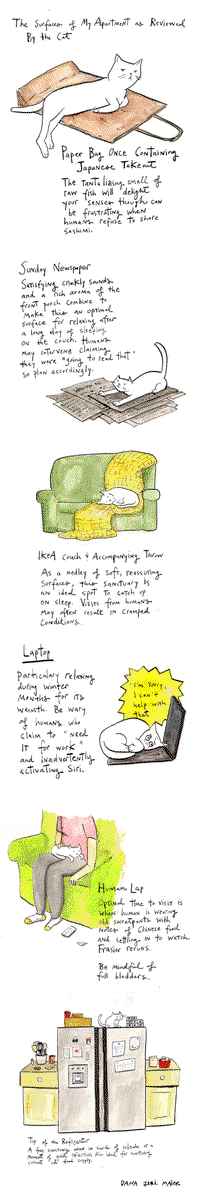 The Surfaces of My Apartment as Reviewed
By the Cat
Paper Bag Once Containing
Japanese Takeout
The tantalizing smell of
raw fish will delight
your senses though can
be frustrating when
humans refuse to share
sashimi.
Sunday Newspaper
Satisfying crinkly sounds
and a rich aroma of the
front porch combine to
make this an optimal
surface for relaxing after
a long day of sleeping
on the couch. Humans
may intervene claiming
they were "going to read that"
so plan accordingly.
IKEA Couch & Accompanying Throw
As a medley of soft, reassuring
surfaces, this sanctuary is
an ideal spot to catch up
on sleep. Visits from humans
may often result in cramped
conditions.
Laptop
Particularly relaxing
during winter
months for its
warmth. Be wary
of humans who
claim to "need
it for work"
and inadvertently
activating Siri.
I'm sorry,
I can't
help with
that
Human Lap
Optimal time to visit is
when human is wearing
old sweatpants with
notes of Chinese food
and settling in to watch
Frasier reruns.
Be mindful of
full bladders.
Top of the Refrigerator
A fine sanctuary when in search of solitude or a
moment of quiet reflection. Also ideal for monitoring
current cat food supply.